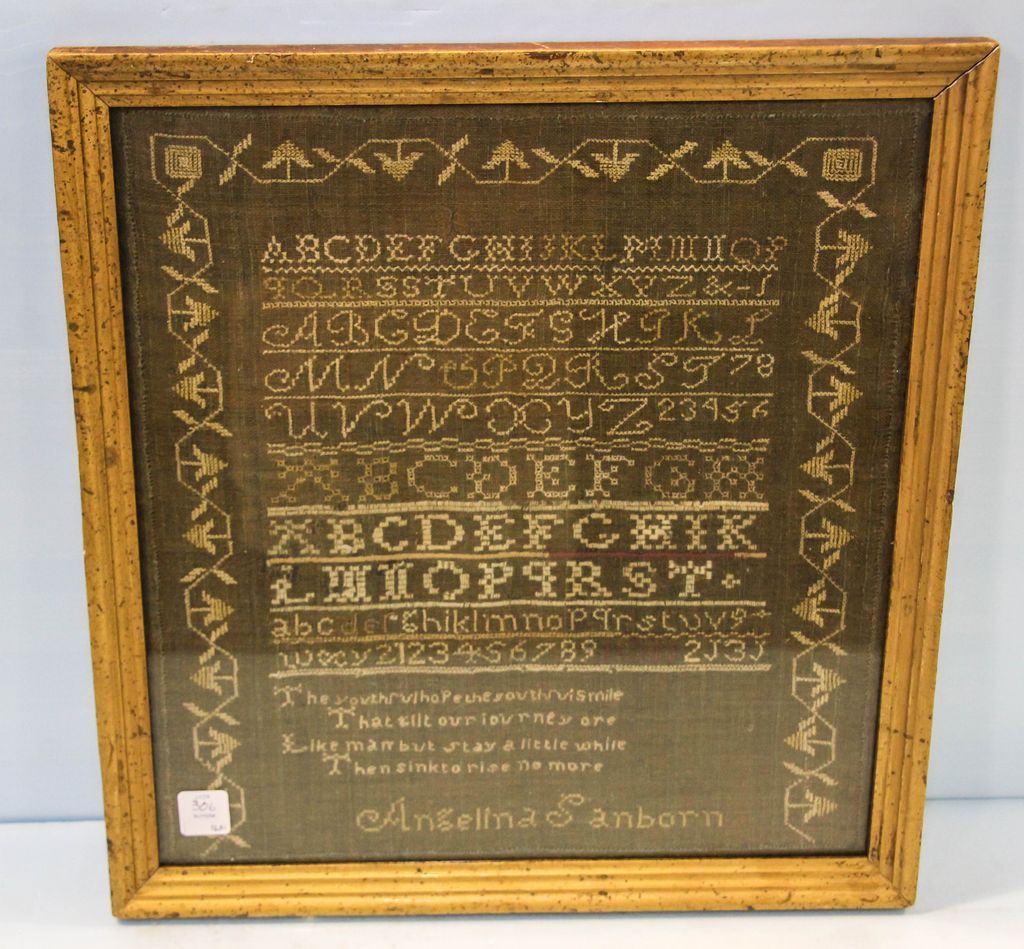 A B C D E F G H I J K L M N O P
Q R S S T U V W X Y Z & - J
A B C D E F G H I K L
M N O P Q R S T 7 8
U V W X Y Z 2 3 4 5 6
A B C D E F G H
A B C D E F G H I K
L M N O P Q R S T
a b c d e f g h i k l m n o p q r s t u v
w x y z 1 2 3 4 5 6 7 8 9
The youthful hope the youthful smile
That gilt our journey ore
Like man but stay a little while
Then sink to rise no more
Angelina Sanborn
306